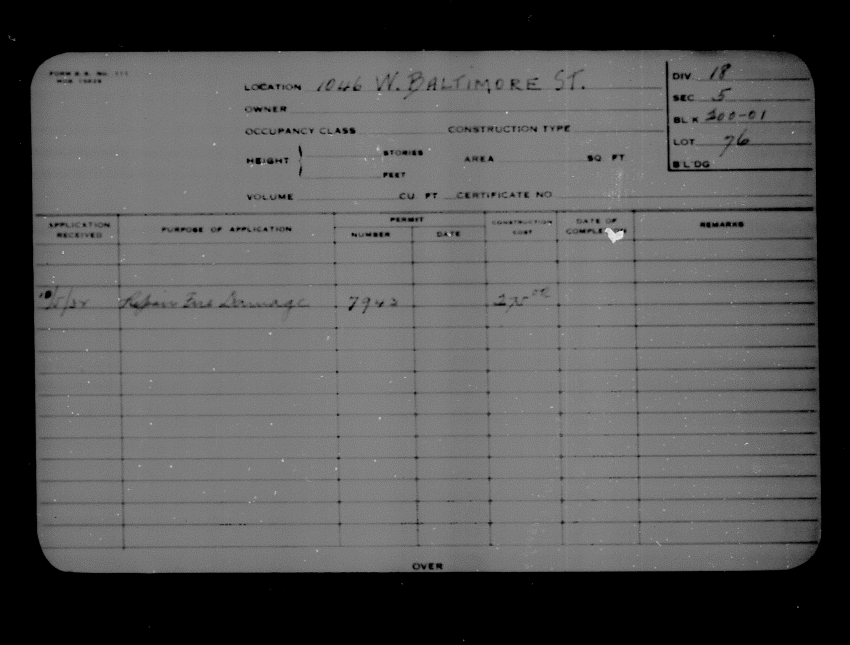 LOCATION 1046 W. BALTIMORE ST.
OWNER
OCCUPANCY CLASS CONSTRUCTION TYPE
HEIGHT STORIES AREA SQ. FT.
FEET
VOLUME CU. FT. CERTIFICATE NO.
DIV. 18
SEC. 5
BLK 200-01
LOT 76
BLDG
APPLICATION RECEIVED PURPOSE OF APPLICATION PERMIT NUMBER DATE CONSTRUCTION COST DATE OF COMPLETION REMARKS
Repair Fire Damage 7943
OVER